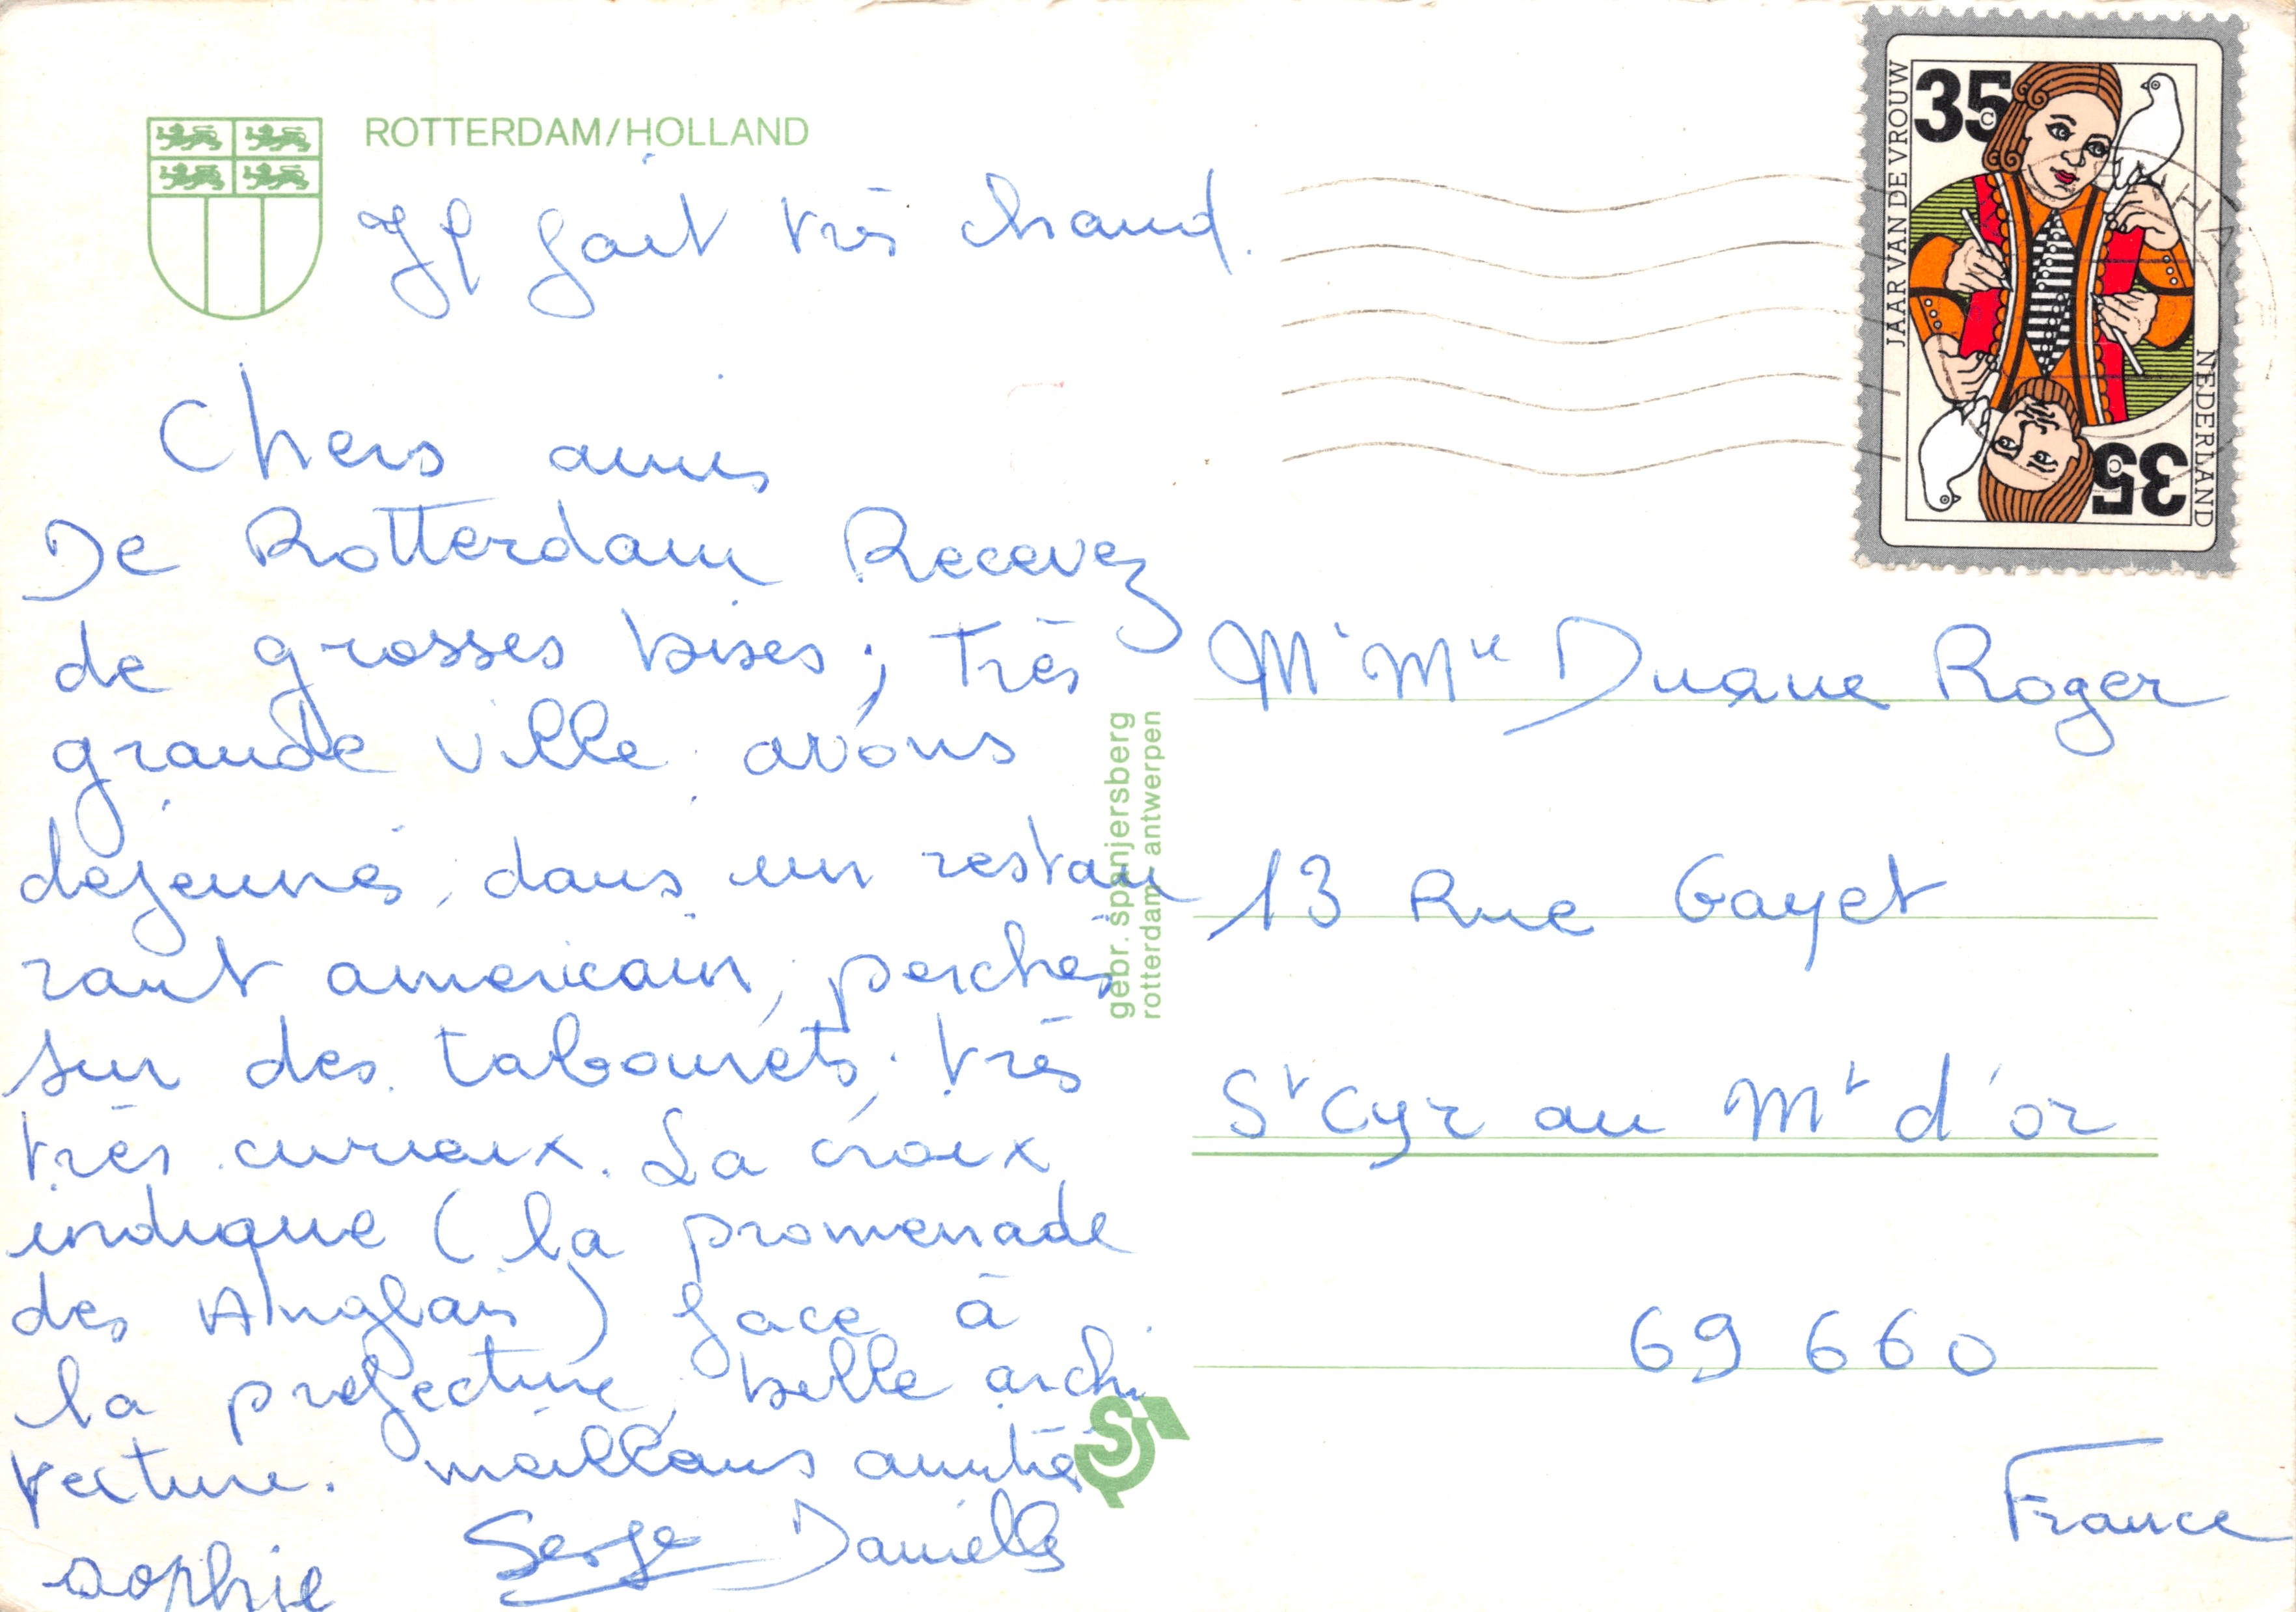 ROTTERDAM/HOLLAND
Il fait très chaud.
Chers amis
De Rotterdam Recevez
de grosses bises; très
grande ville. avons
déjeuné, dans un restau
rant américain, perchés
sur des tabourets; très
très curieux. La croix
indique (la promenade
des Anglais) face à
la préfecture, belle archi
tecture. meilleurs amitiés
Serge Danielle
sophie
gebr. spanjersberg
rotterdam antwerpen
JAAR VAN DE VROUW
35c
NEDERLAND
35c
Mr Mme Duane Roger
13 Rue Gayet
St Cyr au Mt d'or
69 660
France